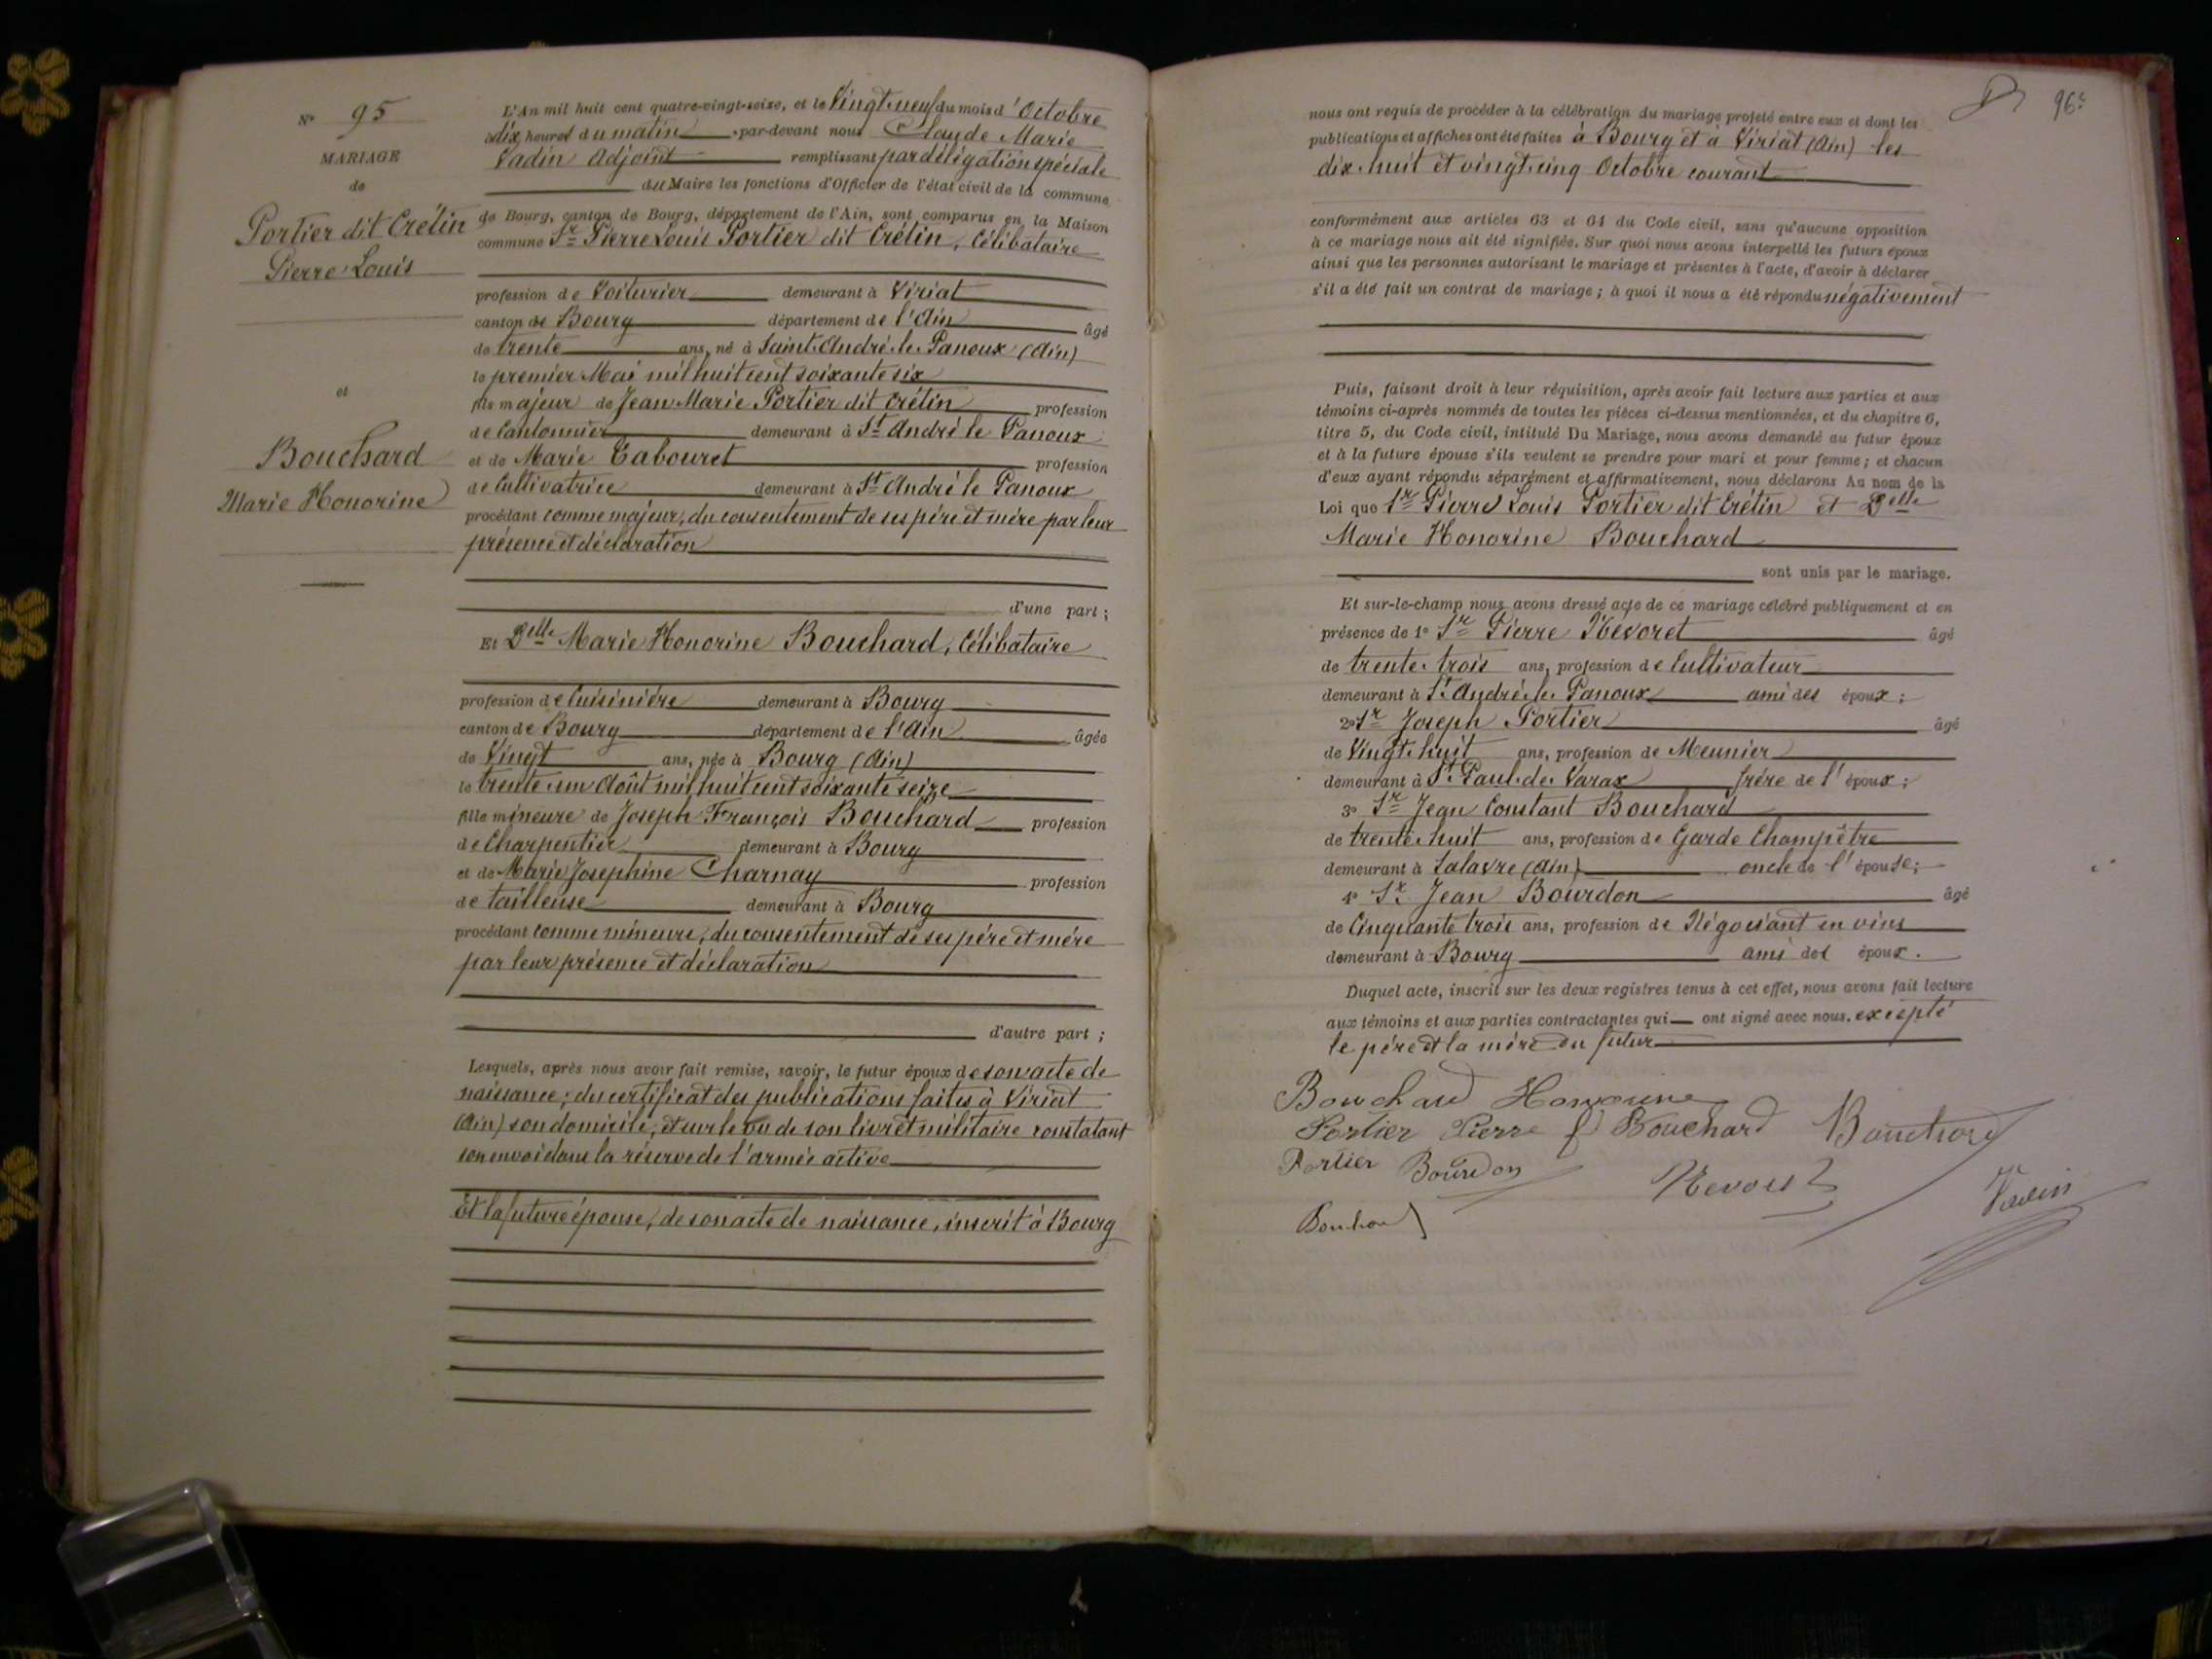 N° 95
MARIAGE
de
Portier dit Crétin
Pierre Louis
et
Bouchard
Marie Honorine
L'An mil huit cent quatre-vingt-seize, et le Vingt-neuf du mois d'Octobre
à dix heures du matin par-devant nous Claude Marie
Vadin Adjoint remplissant par délégation spéciale
du Maire les fonctions d'Officier de l'état civil de la commune
de Bourg, canton de Bourg, département de l'Ain, sont comparus en la Maison
commune Sr Pierre Louis Portier dit Crétin, Célibataire
profession de Voiturier demeurant à Viriat
canton de Bourg département de l'Ain âgé
de trente ans, né à Saint-André-le-Panoux (Ain)
le premier Mai mil huit cent soixante six
fils majeur de Jean Marie Portier dit Crétin profession
de Cantonnier demeurant à St André le Panoux
et de Marie Tabouret profession
de Cultivatrice demeurant à St André le Panoux
procédant comme majeur, du consentement de ses père et mère par leur
présence et déclaration
d'une part ;
Et Delle Marie Honorine Bouchard, Célibataire
profession de Cuisinière demeurant à Bourg
canton de Bourg département de l'Ain âgée
de Vingt ans, née à Bourg (Ain)
le trente-un Août mil huit cent soixante seize
fille mineure de Joseph François Bouchard profession
de Charpentier demeurant à Bourg
et de Marie Josephine Charnay profession
de tailleuse demeurant à Bourg
procédant comme mineure, du consentement de ses père et mère
par leur présence et déclaration
d'autre part ;
Lesquels, après nous avoir fait remise, savoir, le futur époux de son acte de
naissance ; du certificat des publications faites à Viriat
(Ain) son domicile, et sur le vu de son livret militaire constatant
son envoi dans la réserve de l'armée active
Et la future épouse, de son acte de naissance, inscrit à Bourg
96e
nous ont requis de procéder à la célébration du mariage projeté entre eux et dont les
publications et affiches ont été faites à Bourg et à Viriat (Ain) les
dix-huit et vingt-cinq Octobre courant
conformément aux articles 63 et 64 du Code civil, sans qu'aucune opposition
à ce mariage nous ait été signifiée. Sur quoi nous avons interpellé les futurs époux
ainsi que les personnes autorisant le mariage et présentes à l'acte, d'avoir à déclarer
s'il a été fait un contrat de mariage ; à quoi il nous a été répondu négativement
Puis, faisant droit à leur réquisition, après avoir fait lecture aux parties et aux
témoins ci-après nommés de toutes les pièces ci-dessus mentionnées, et du chapitre 6,
titre 5, du Code civil, intitulé Du Mariage, nous avons demandé au futur époux
et à la future épouse s'ils veulent se prendre pour mari et pour femme ; et chacun
d'eux ayant répondu séparément et affirmativement, nous déclarons Au nom de la
Loi que Sr Pierre Louis Portier dit Crétin et Delle
Marie Honorine Bouchard
sont unis par le mariage.
Et sur-le-champ nous avons dressé acte de ce mariage célébré publiquement et en
présence de 1° Sr Pierre Névoret âgé
de trente-trois ans, profession de Cultivateur
demeurant à St André-le-Panoux ami des époux ;
2° Sr Joseph Portier âgé
de Vingt-huit ans, profession de Meunier
demeurant à St Paul-de-Varax frère de l'époux ;
3° Sr Jean Constant Bouchard
de trente-huit ans, profession de Garde Champêtre
demeurant à Salavre (Ain) oncle de l'épouse ;
4° Sr Jean Bourdon âgé
de Cinquante trois ans, profession de Négociant en vins
demeurant à Bourg ami des époux.
Duquel acte, inscrit sur les deux registres tenus à cet effet, nous avons fait lecture
aux témoins et aux parties contractantes qui ont signé avec nous. excepté
le père et la mère du futur
Bouchard Honorine
Portier Pierre Bouchard Bouchard
Portier Bourdon Nevoret
Vadin
Bouchard